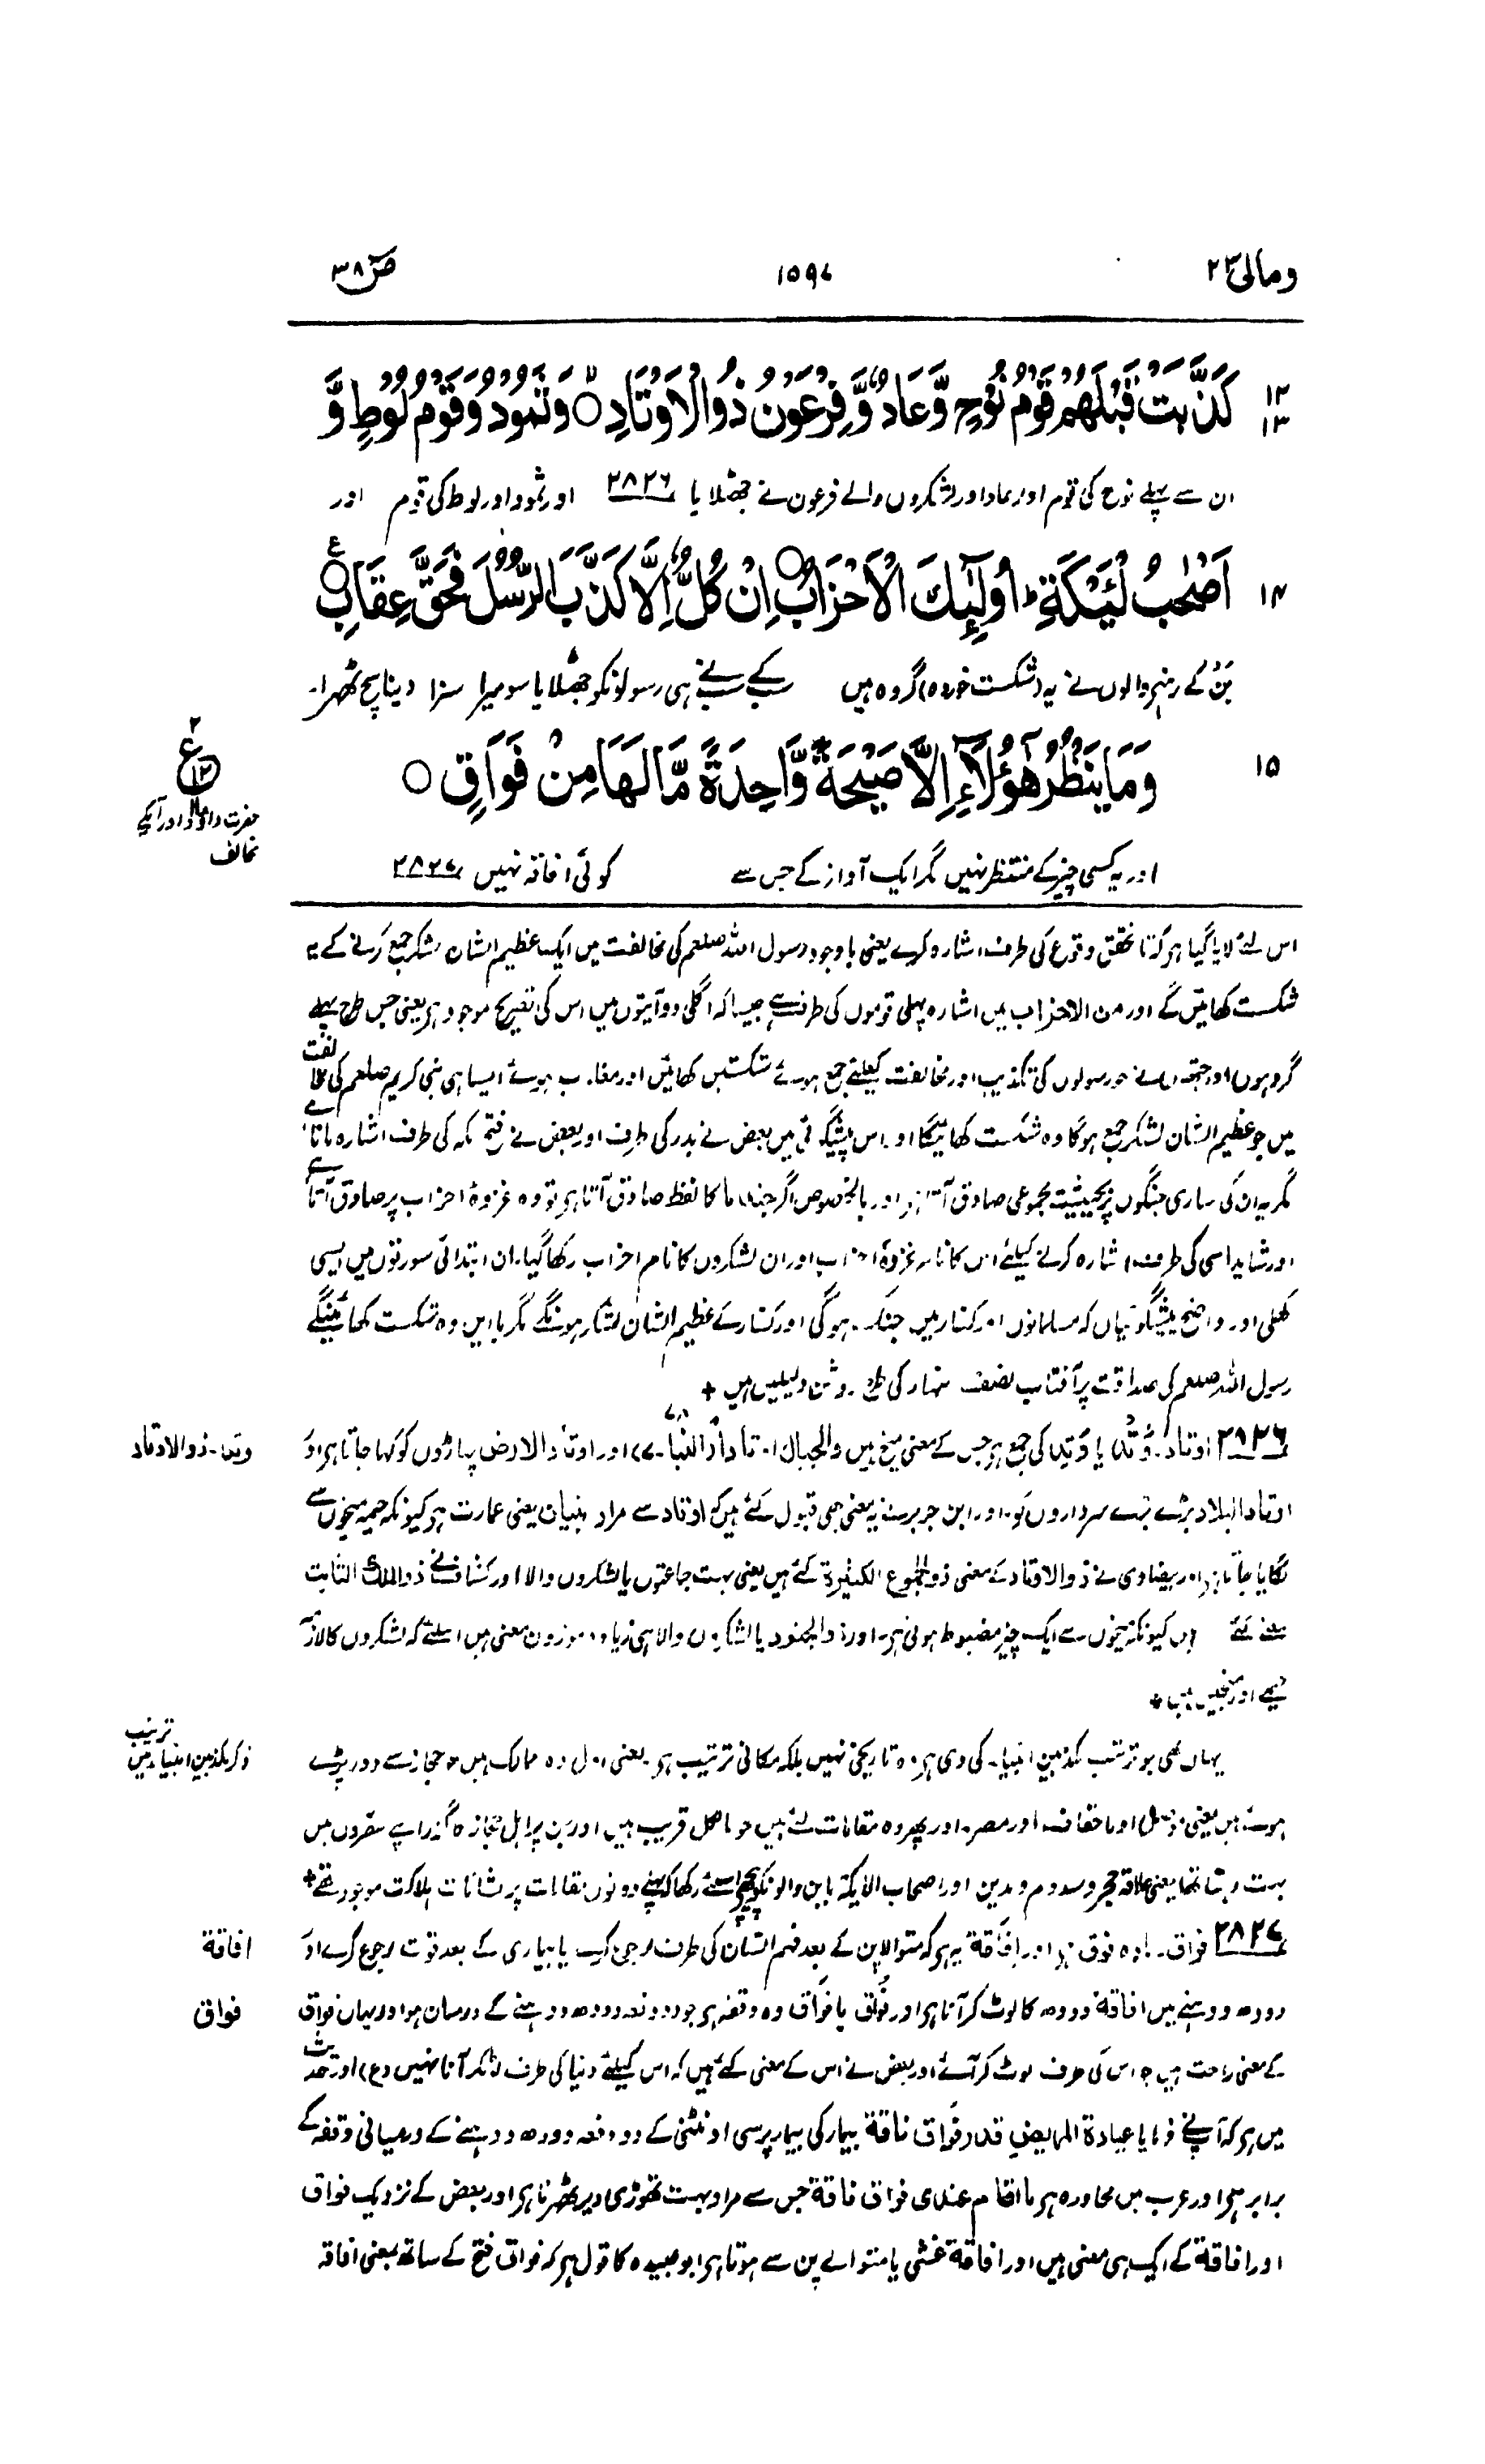 ومالی ۲۳
۱۵۹۷
صٓ ۳۸
۱۲ ۱۳ كَذَّبَتْ قَبْلَهُمْ قَوْمُ نُوْحٍ وَّعَادٌ وَّفِرْعَوْنُ ذُو الْاَوْتَادِ ○ وَثَمُوْدُ وَقَوْمُ لُوْطٍ وَّ
ان سے پہلے نوح کی قوم اور عاد اور لشکروں والے فرعون نے جھٹلایا ۲۸۲۶ اور ثمود اور لوط کی قوم اور
۱۴ اَصْحٰبُ لْـَٔيْكَةِ ؕ اُولٰٓئِكَ الْاَحْزَابُ ○ اِنْ كُلٌّ اِلَّا كَذَّبَ الرُّسُلَ فَحَقَّ عِقَابِ ○ ع
بَن کے رہنے والوں نے یہ (شکست خوردہ) گروہ ہیں سب کے سب نے ہی رسولونکو جھٹلایا سو میرا سزا دینا سچ ٹھہرا۔
۱۵ وَمَا يَنْظُرُ هٰٓؤُلَآءِ اِلَّا صَيْحَةً وَّاحِدَةً مَّا لَهَا مِنْ فَوَاقٍ ○
۲ ع ۱۲
حضرت داؤد اور آپکے
مخالف
اور یہ کسی چیز کے منتظر نہیں مگر ایک آواز کے جس سے کوئی افاقہ نہیں ۲۸۲۷
اس لئے لایا گیا ہو کہ تا تحقق وقوع کی طرف اشارہ کرے یعنی باوجود رسول اللہ صلعم کی مخالفت میں ایک عظیم الشان لشکر جمع کرنے کے یہ
شکست کھائیں گے اور من الاحزاب میں اشارہ پہلی قوموں کی طرف ہے جیسا کہ اگلی دو آیتوں میں اس کی تصریح موجود ہو یعنی جس طرح پہلے
گروہوں اور جتھوں نے جو رسولوں کی تکذیب اور مخالفت کیلئے جمع ہوئے شکستیں کھائیں اور مغلوب ہوئے ایسا ہی نبی کریم صلعم کی مخالفت
میں جو عظیم الشان لشکر جمع ہوگا وہ شکست کھائیگا اور اس پیشگوئی میں بعض نے بدر کی طرف اور بعض نے فتح مکہ کی طرف اشارہ مانا ہے
مگر یہ ان کی ساری جنگوں پر بحیثیت مجموعی صادق آتا ہو اور بالخصوص اگر جند ما کا لفظ صادق آتا ہو تو وہ غزوۂ احزاب پر صادق آتا ہے
اور شاید اسی کی طرف اشارہ کرنے کیلئے اس کا نام غزوۂ احزاب اور ان لشکروں کا نام احزاب رکھا گیا۔ ان ابتدائی سورتوں میں ایسی
کھلی اور واضح پیشگوئیاں کہ مسلمانوں اور کفار میں جنگ ہوگی اور کفار کے عظیم الشان لشکر ہونگے مگر بااین وہ شکست کھائینگے
رسول اللہ صلعم کی صداقت پر آفتاب نصف نہار کی طرح روشن دلیلیں ہیں +
۲۸۲۶ اوتاد۔ وَتَد یا وَتِد کی جمع ہو جس کے معنی میخ ہیں والجبال اوتادا (النبا۔۷) اور اوتاد الارض پہاڑوں کو کہا جاتا ہو اور
وتد۔ ذوالاوتاد
اوتاد البلاد بڑے بڑے سرداروں کو۔ اور ابن جریر نے یہ معنی بھی قبول کئے ہیں کہ اوتاد سے مراد بنیان یعنی عمارت ہو کیونکہ خیمہ میخوں سے
لگایا جاتا ہو اور بیضاوی نے ذوالاوتاد کے معنی ذوالجموع الکثیرة کئے ہیں یعنی بہت جماعتوں یا لشکروں والا اور کشاف نے ذوالملک الثابت
معنے کئے ہیں کیونکہ میخوں سے ایک چیز مضبوط ہوتی ہو۔ اور ذوالجنود یا لشکروں والا ہی زیادہ موزون معنی ہیں اسلئے کہ لشکروں کا لازمہ
خیمے اور میخیں ہیں +
یہاں بھی جو ترتیب مکذبین انبیاء کی دی ہو وہ تاریخی نہیں بلکہ مکانی ترتیب ہو۔ یعنی اول وہ ممالک ہیں جو حجاز سے دور پڑے
ترتیب
ذکر مکذبین انبیاء میں
ہوئے ہیں یعنی اور احقاف اور مصر۔ اور پھر وہ مقامات لئے ہیں جو بالکل قریب ہیں اور جن پر اہل حجاز کا گذر اپنے سفروں میں
بہت رہتا تھا یعنی علاقہ حجر و سدوم و مدین اور اصحاب الایکة یا بن والونکو پیچھے اسلئے رکھا کہ پہلے دونوں مقامات پر نشانات ہلاکت موجود تھے +
۲۸۲۷ فواق۔ مادہ فوق ہو اور افاقة یہ ہو کہ متوالاپن کے بعد فہم انسان کی طرف رجوع کرے یا بیماری کے بعد قوت رجوع کرے اور
افاقة
دودھ دوہنے میں افاقة دودھ کا لوٹ کر آنا ہو اور فُواق یا فَواق وہ وقفہ ہو جو دو دفعہ دودھ دوہنے کے درمیان ہو اور یہاں فواق
فواق
کے معنی راحت ہیں جو اس کی طرف لوٹ کر آئے اور بعض نے اس کے معنی کئے ہیں کہ اس کیلئے دنیا کی طرف لوٹکر آنا نہیں (غ) اور حدیث
میں ہو کہ آپنے فرمایا عیادة المریض قدر فواق ناقة بیمار کی بیمار پرسی اونٹنی کے دو دفعہ دودھ دوہنے کے درمیانی وقفہ کے
برابر ہو اور عرب میں محاورہ ہو ما اقام عندی فواق ناقة جس سے مراد بہت تھوڑی دیر ٹھہرنا ہو اور بعض کے نزدیک فواق
اور افاقة کے ایک ہی معنی ہیں اور افاقة غشی یا متوالے پن سے ہوتا ہو ابوعبیدہ کا قول ہو کہ فواق فتح کے ساتھ بمعنی افاقہ